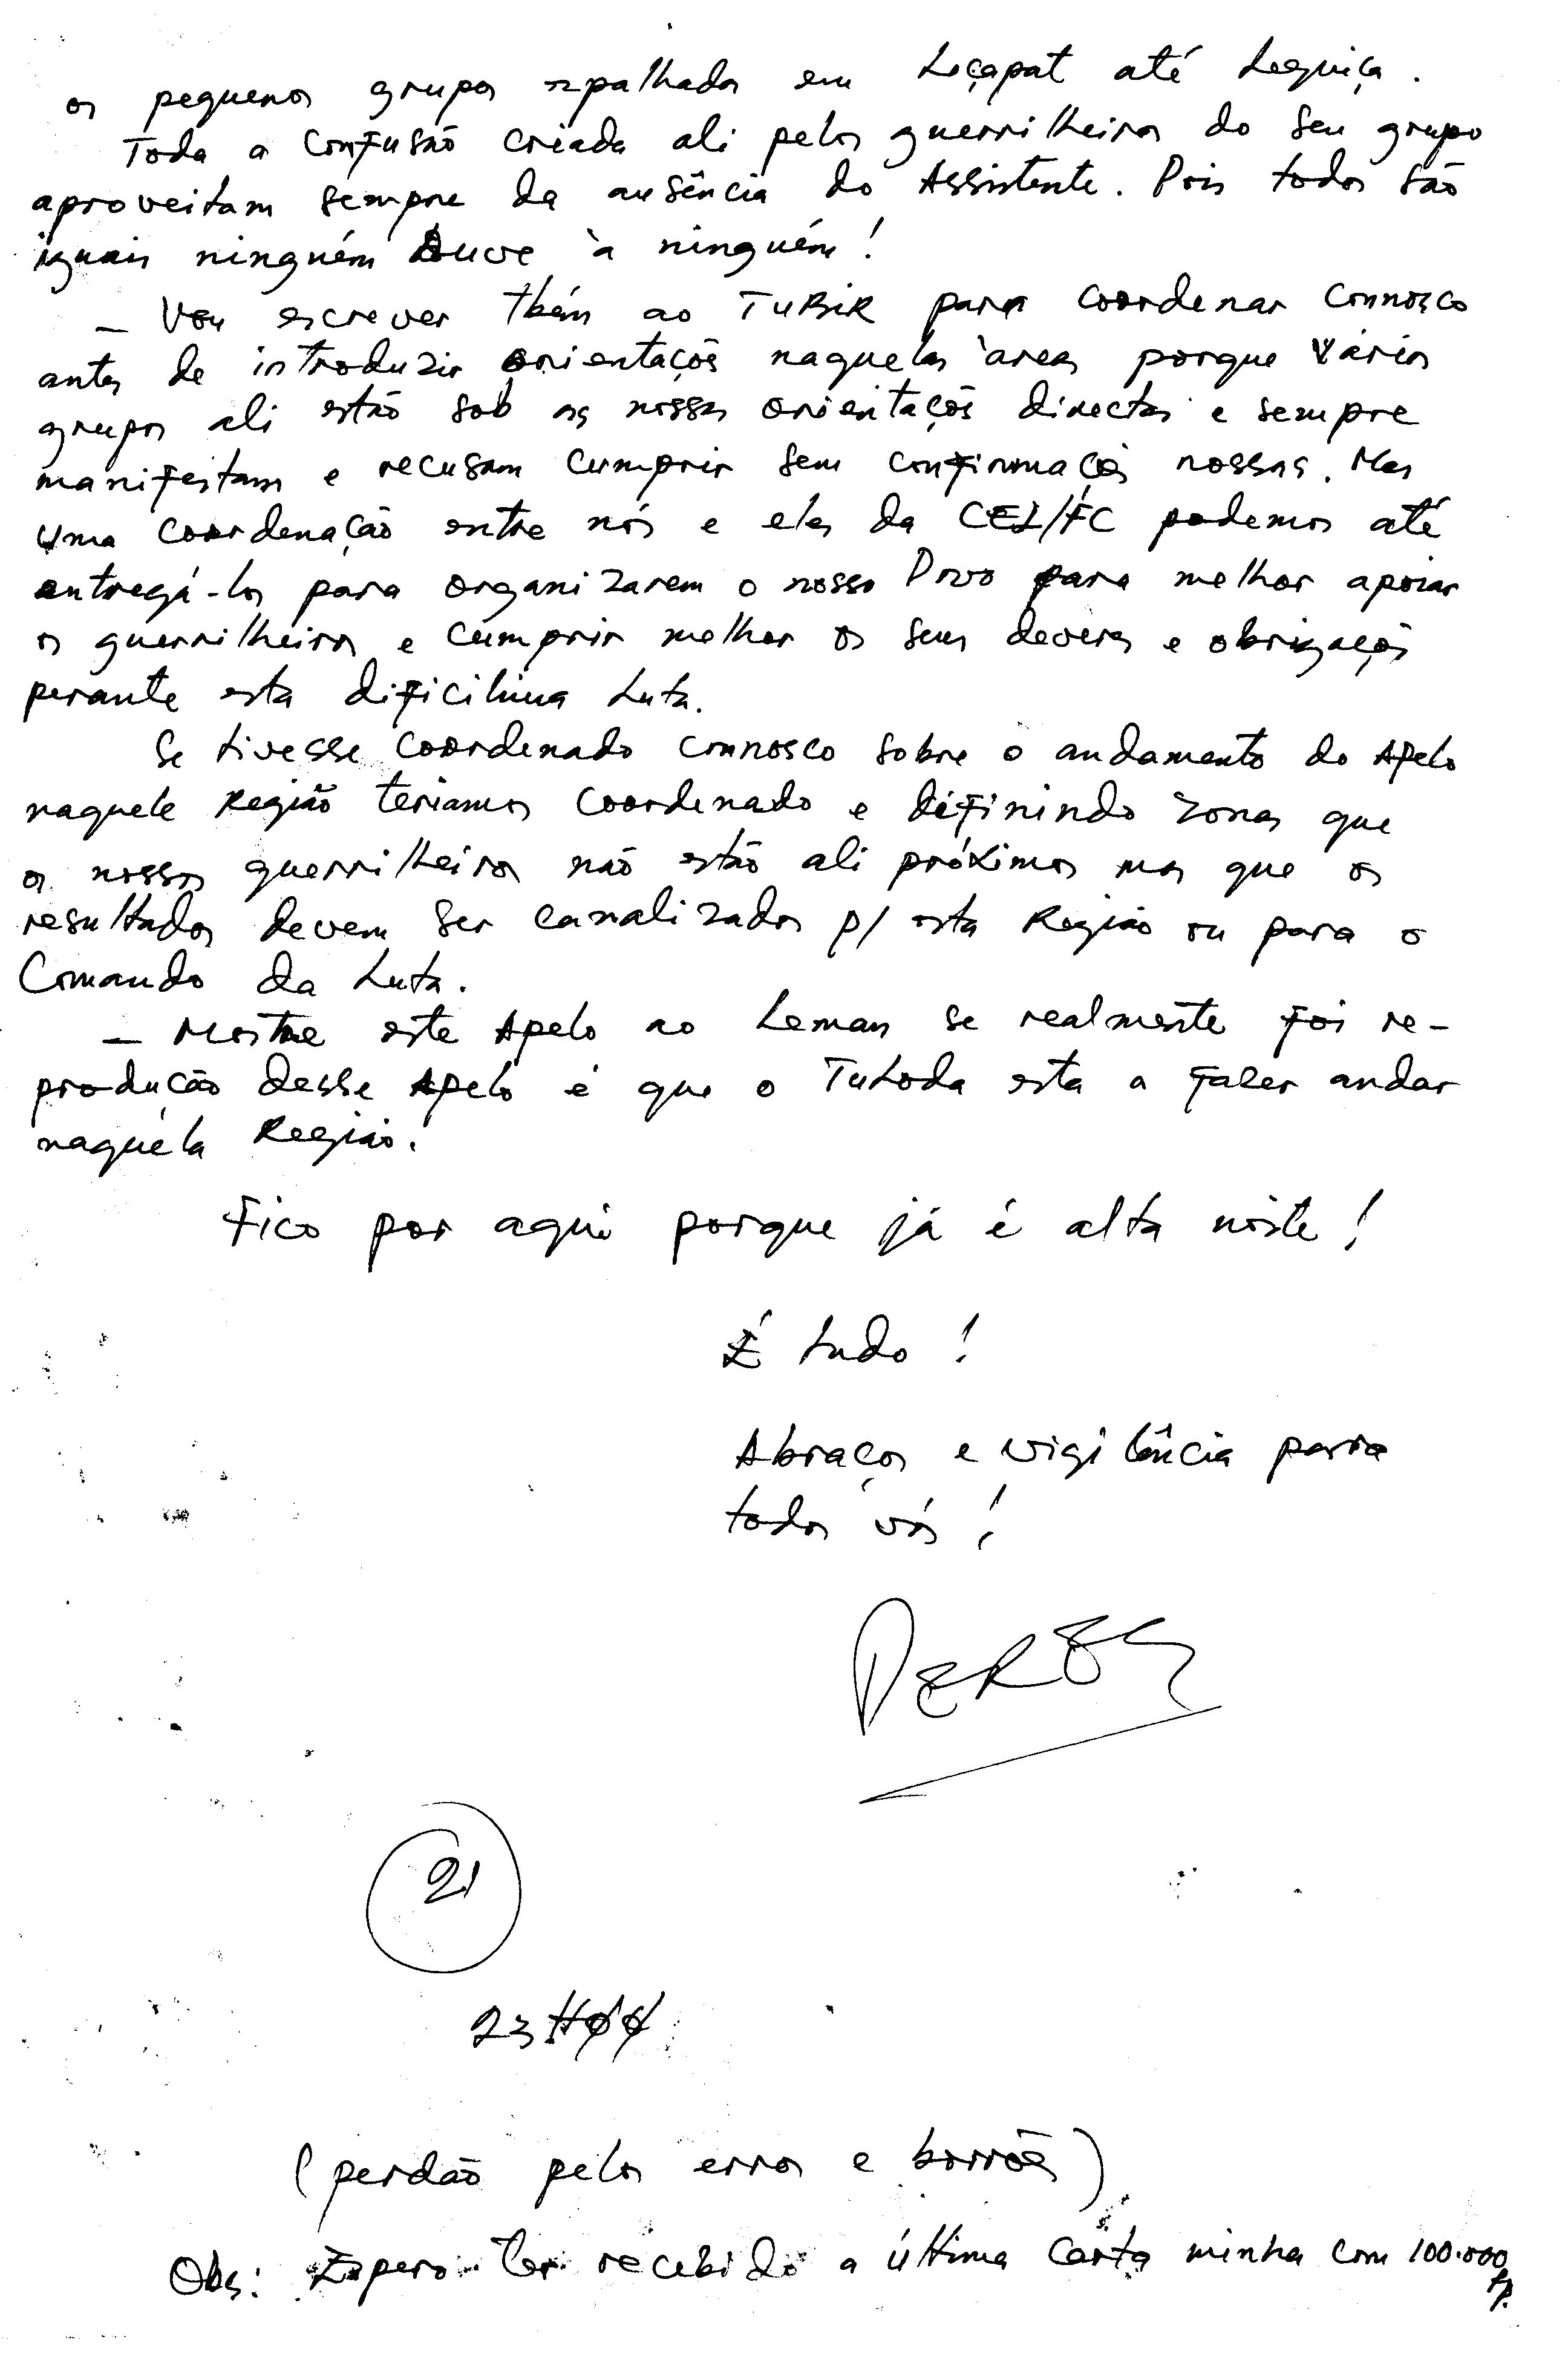 os pequenos grupos espalhados em Leçapat até Lequiça.
Toda a confusão criada ali pelos guerrilheiros do seu grupo
aproveitam sempre da ausência do Assistente. Pois todos são
iguais ninguém ouve à ninguém!
— Vou escrever tbém ao TUBIR para coordenar connosco
antes de introduzir orientações naquelas àreas porque vários
grupos ali estão sob as nossas orientações directas e sempre
manifestam e recusam cumprir sem confirmações nossas. Mas
uma coordenação entre nós e eles da CEL/FC podemos até
entregá-los para organizarem o nosso Povo para melhor apoiar
os guerrilheiros e cumprir melhor os seus deveres e obrigações
perante esta dificílima Luta.
Se tivesse coordenado connosco sobre o andamento do Apelo
naquele Região teriamos coordenado e difinindo zonas que
os nossos guerrilheiros não estão ali próximos mas que os
resultados devem ser canalizados p/ esta Região ou para o
Comando da Luta.
— Mostre este Apelo ao Leman se realmente foi re-
produção desse Apelo é que o TuLoda esta a fazer andar
naquela Região.
Fico por aqui porque já é alta noite!
É tudo!
Abraços e vigilância para
todos vós!
21
23H00
(perdão pelos erros e borrões)
Obs: Espero ter recebido a última carta minha com 100.000
rp.